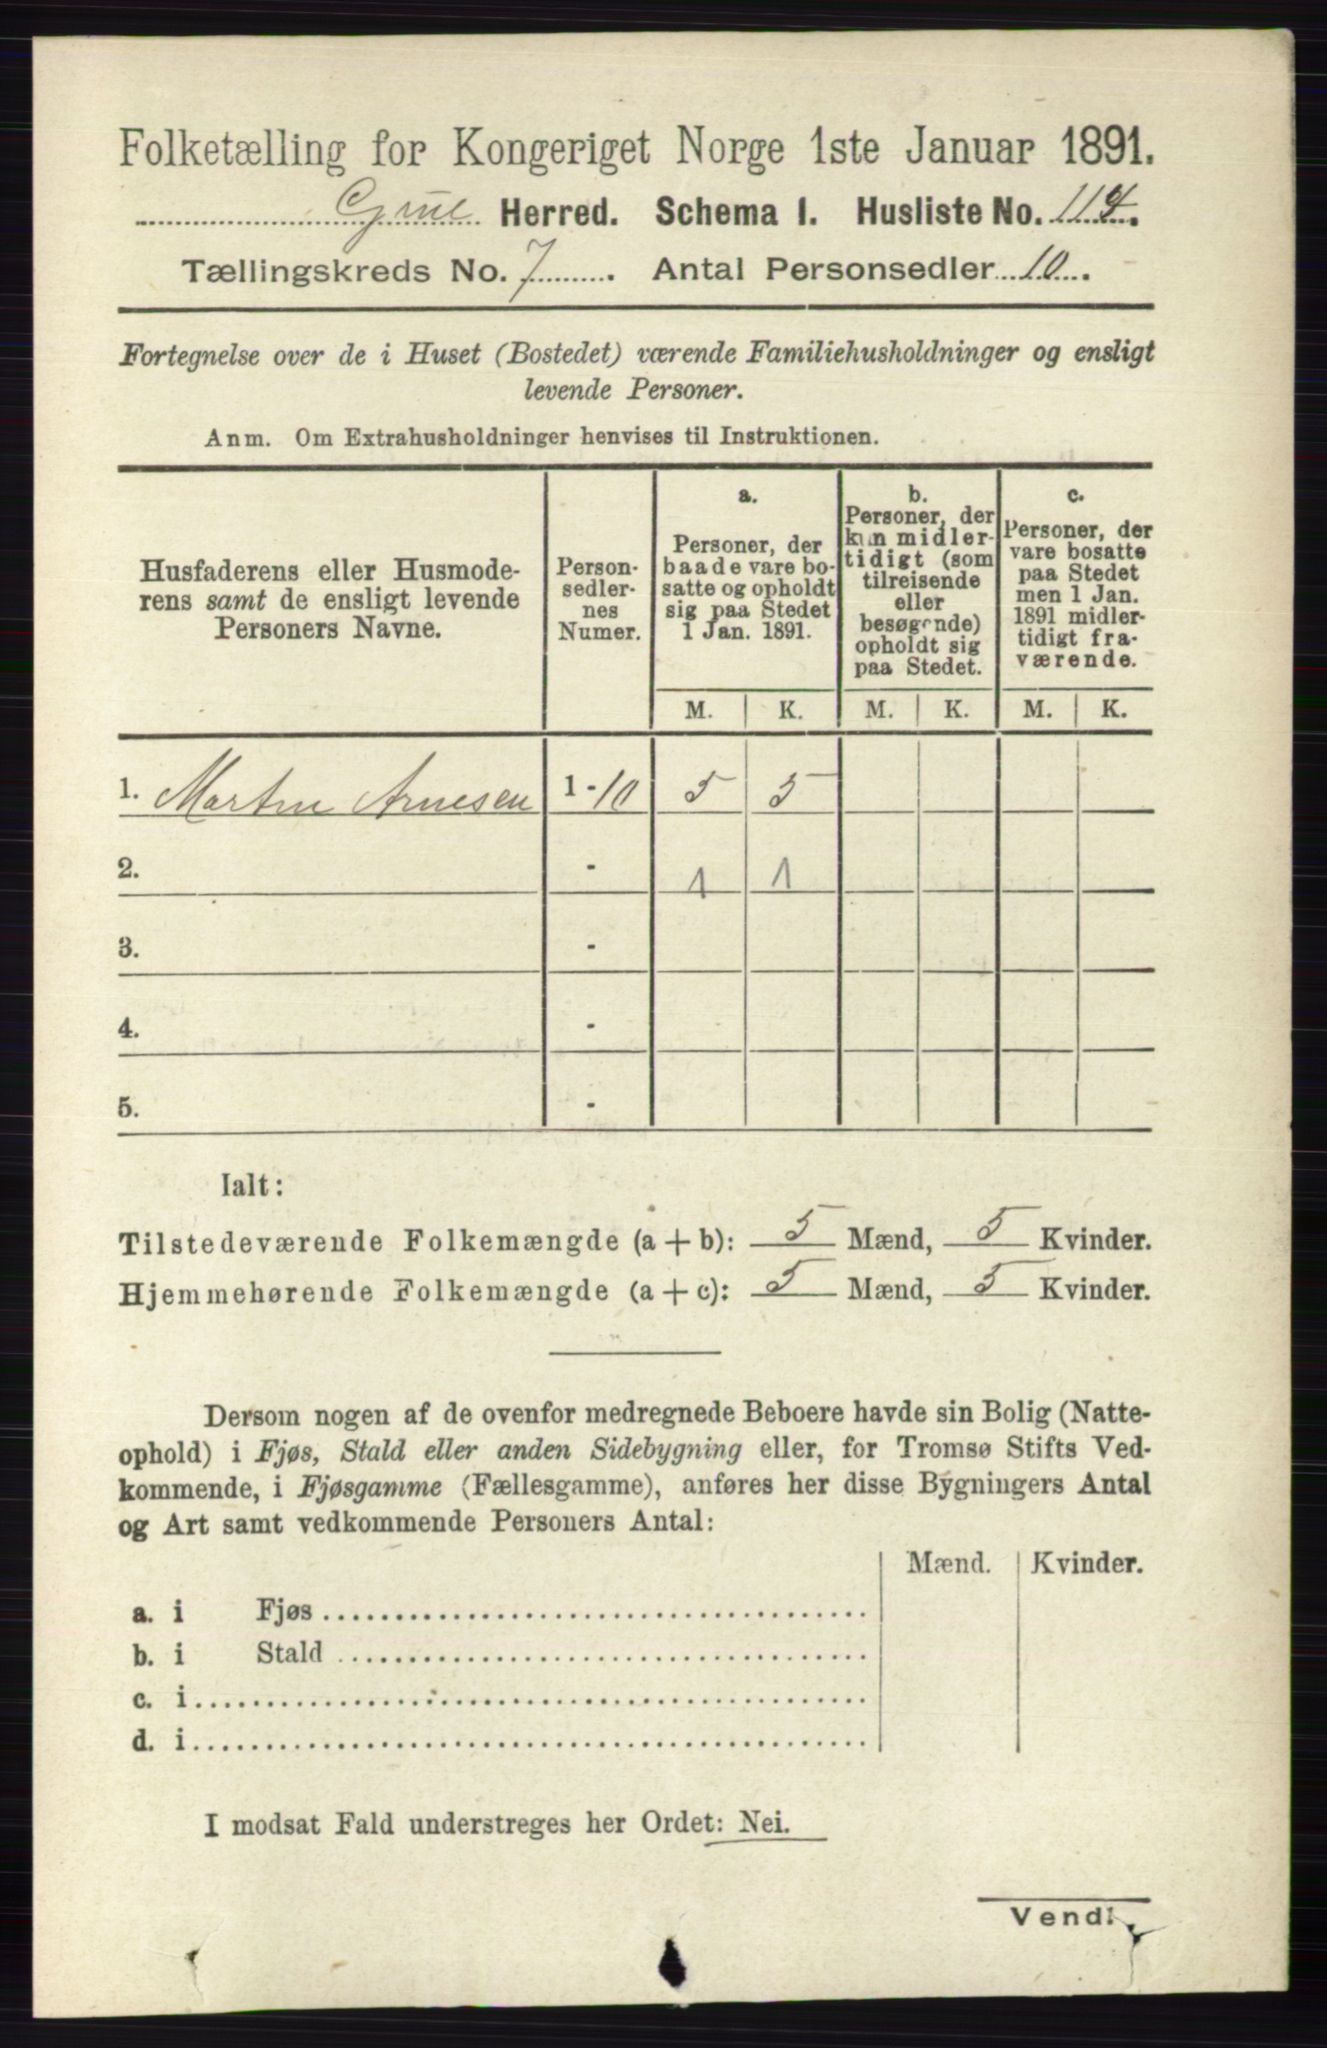 Folketælling for Kongeriget Norge 1ste Januar 1891.
Grue Herred. Schema 1. Husliste No. 114.
Tællingskreds No. 7. Antal Personsedler 10.
Fortegnelse over de i Huset (Bostedet) værende Familiehusholdninger og ensligt
levende Personer.
Anm. Om Extrahusholdninger henvises til Instruktionen.
Husfaderens eller Husmode-
rens samt de ensligt levende
Personers Navne.
Person-
sedler-
nes
Numer.
a.
Personer, der
baade vare bo-
satte og opholdt
sig paa Stedet
1 Jan. 1891.
b.
Personer, der
kun midler-
tidigt (som
tilreisende
eller
besøgende)
opholdt sig
paa Stedet.
c.
Personer, der
vare bosatte
paa Stedet
men 1 Jan.
1891 midler-
tidigt fra-
værende.
M. K. M. K. M. K.
1. Martin Arnesen 1-10 5 5
2. - 1 1
3. -
4. -
5. -
Ialt:
Tilstedeværende Folkemængde (a + b): 5 Mænd, 5 Kvinder.
Hjemmehørende Folkemængde (a + c): 5 Mænd, 5 Kvinder.
Dersom nogen af de ovenfor medregnede Beboere havde sin Bolig (Natte-
ophold) i Fjøs, Stald eller anden Sidebygning eller, for Tromsø Stifts Ved-
kommende, i Fjøsgamme (Fællesgamme), anføres her disse Bygningers Antal
og Art samt vedkommende Personers Antal:
Mænd. Kvinder.
a. i Fjøs
b. i Stald
c. i
d. i
I modsat Fald understreges her Ordet: Nei.
Vend!